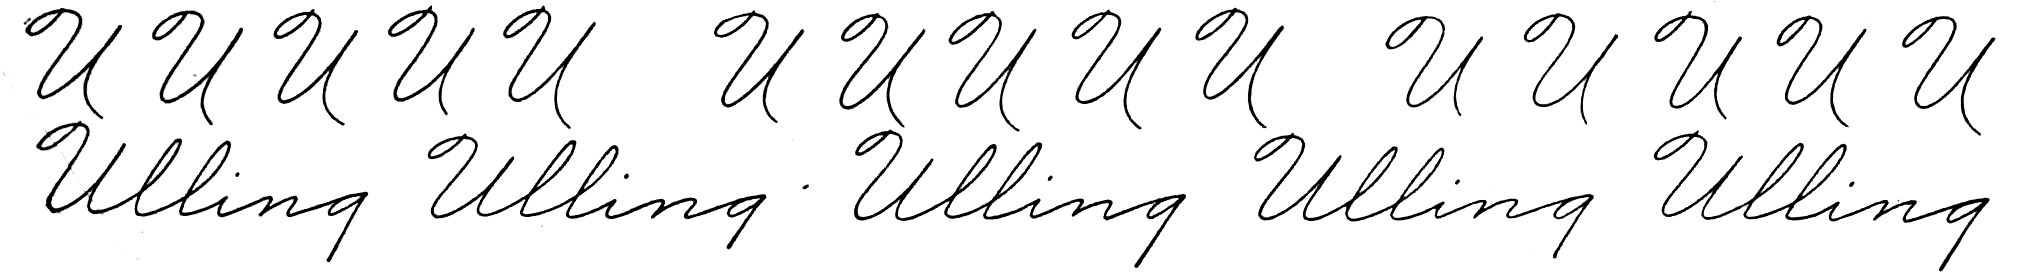 U U U U U U U U U U U U U U U
Ulling Ulling Ulling Ulling Ulling